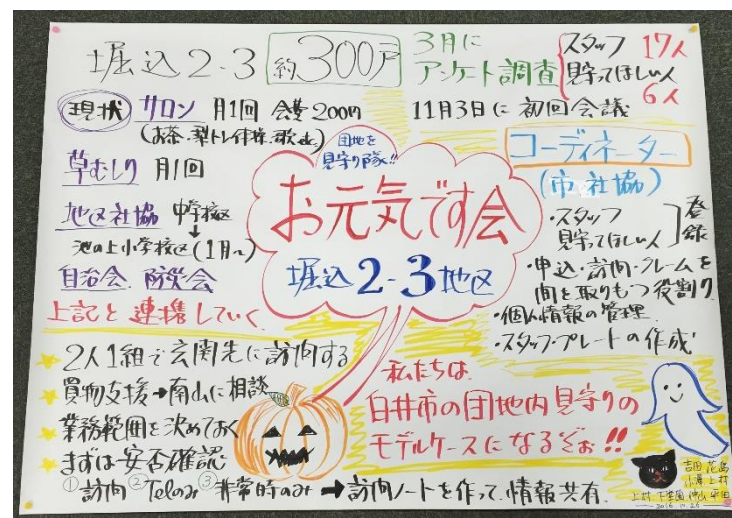 堀込2-3 約300戸
3月に
アンケート調査
スタッフ 17人
見守ってほしい人
6人
11月3日に 初回会議
現状 サロン 月1回 会費200円
(お茶・梨トレ体操・歌 )
草むしり 月1回
地区社協 中学校区
↓
池の上小学校区(1月~)
自治会 防災会
上記と連携していく
団地を
見守り隊!!
お元気です会
堀込2-3地区
コーディネーター
(市 社協)
・スタッフ
見守ってほしい人 ]登録
・申込・訪問・クレームを
間を取りもつ役割り
・個人情報の管理
・スタッフ・プレートの作成
★2人1組で玄関先に訪問する
★買物支援→南山に相談
★業務範囲を決めておく
★まずは安否確認
①訪問 ②Telのみ ③非常時のみ → 訪問ノートを作って、情報共有
私たちは
白井市の団地内見守りの
モデルケースになるぞぉ!!
吉田 花島
上村
上村